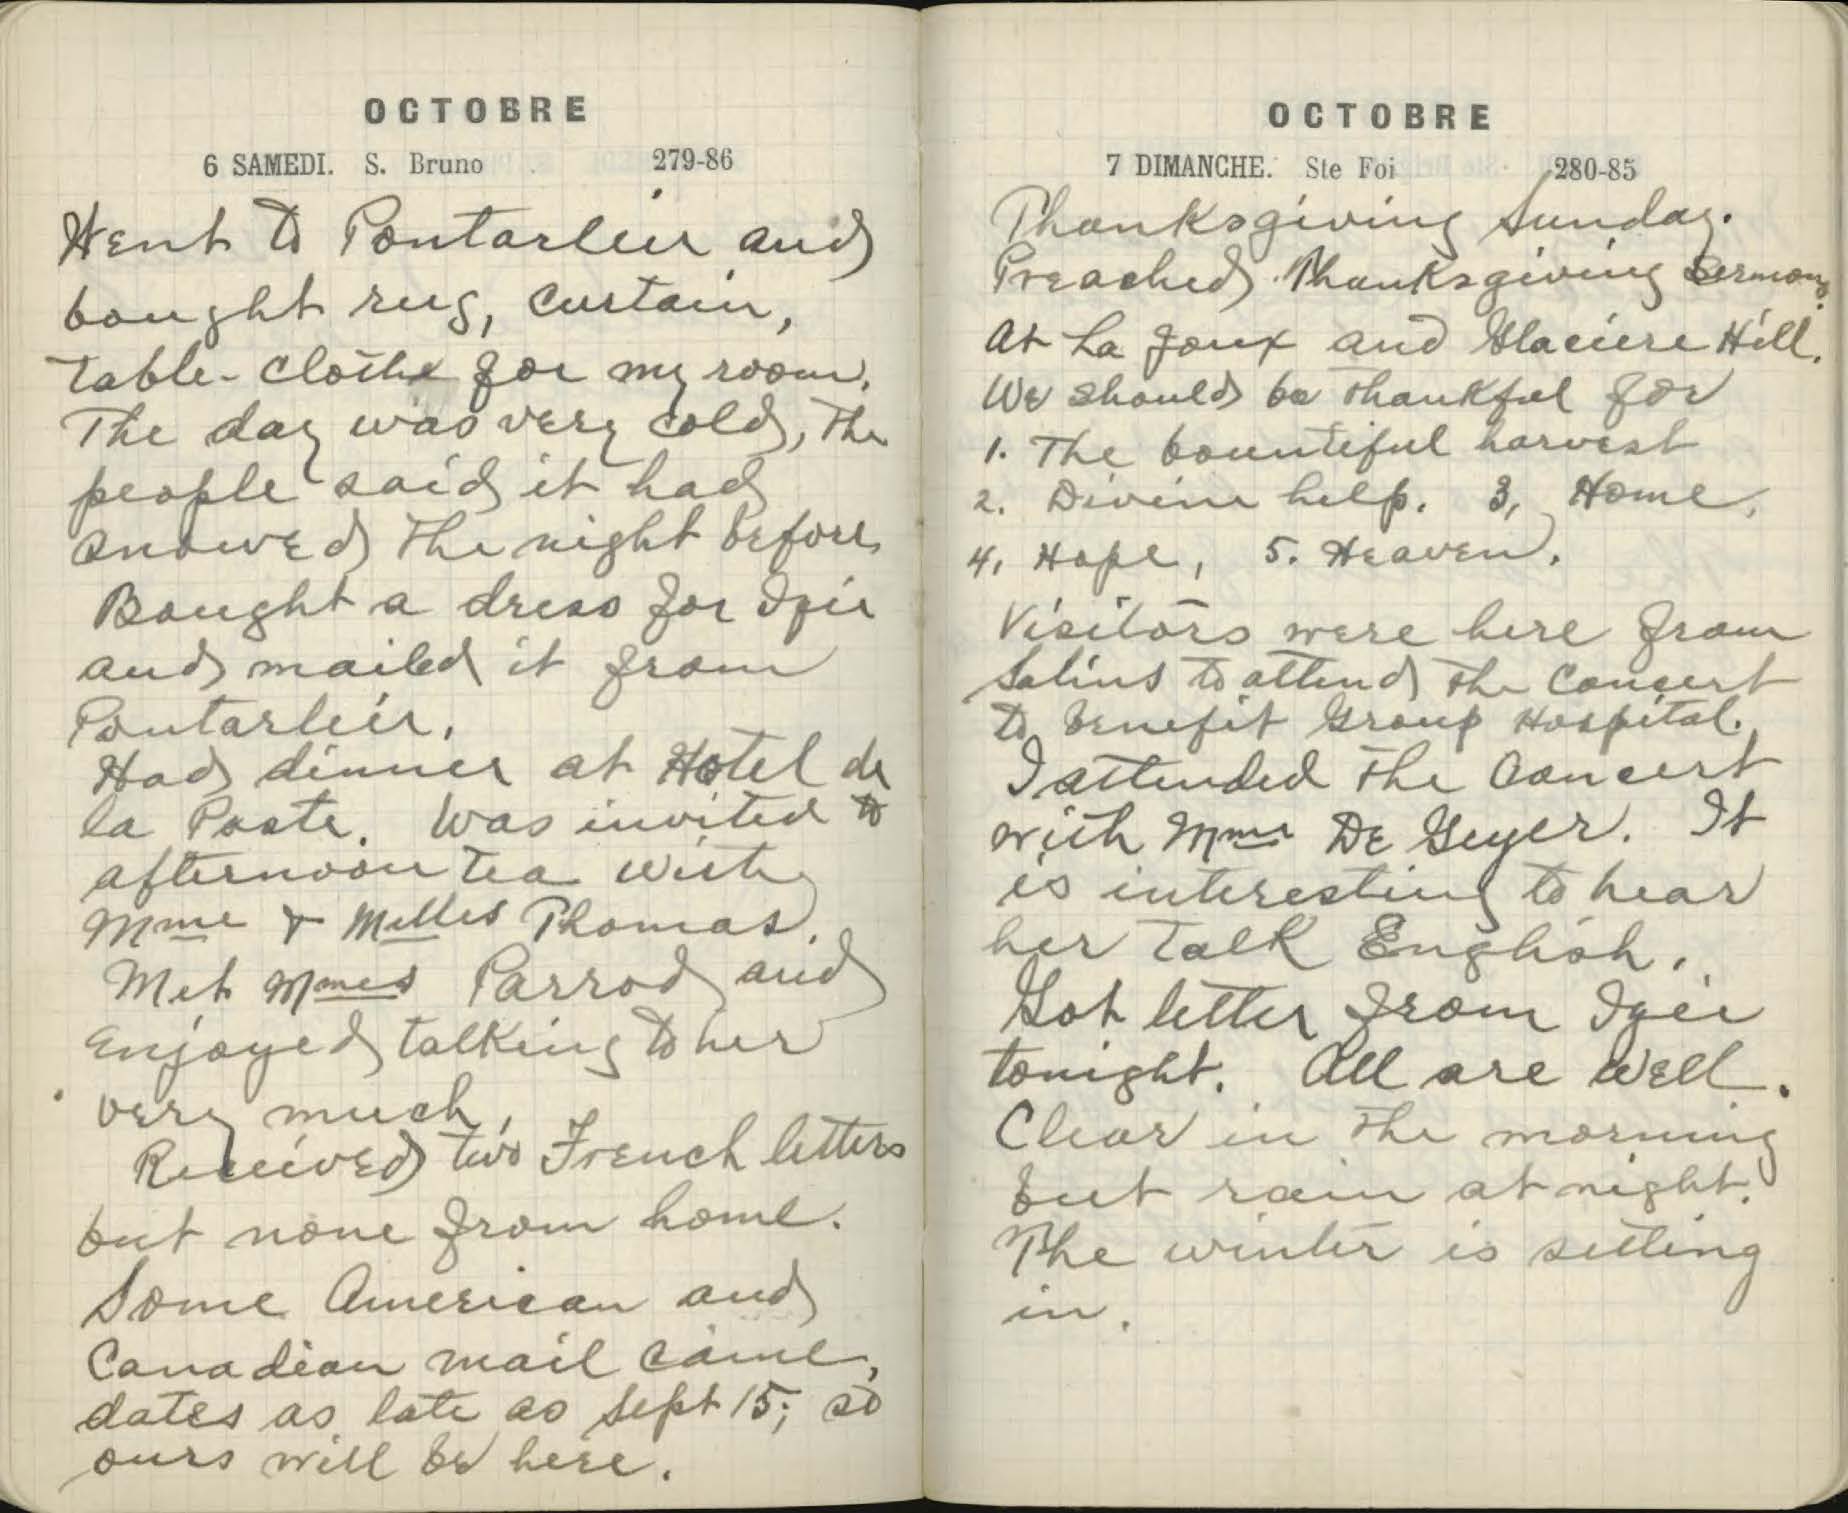 OCTOBRE
6 SAMEDI. S. Bruno 279-86
Went to Pontarlier and
bought rug, curtain,
table-clothe for my room.
The day was very cold, the
people said it had
snowed the night before.
Bought a dress for Izie
and mailed it from
Pontarlier.
Had dinner at Hotel de
la Poste. Was invited to
afternoon tea with
Mme & Mlles Thomas.
Met Mmes Parrod and
enjoyed talking to her
very much.
Received two French letters
but none from home.
Some American and
Canadian mail came,
dates as late as Sept 15; so
ours will be here.
OCTOBRE
7 DIMANCHE. Ste Foi 280-85
Thanksgiving Sunday.
Preached Thanksgiving Sermons
at La Joux and Glaciere Hill.
We should be thankful for
1. The bountiful harvest
2. Divine help. 3, Home.
4, Hope, 5. Heaven.
Visitors were here from
Salins to attend the Concert
to benefit Group Hospital.
I attended the Concert
with Mme De Geyer. It
is interesting to hear
her talk English.
Got letter from Izie
tonight. All are well.
Clear in the morning
but rain at night.
The winter is setting
in.